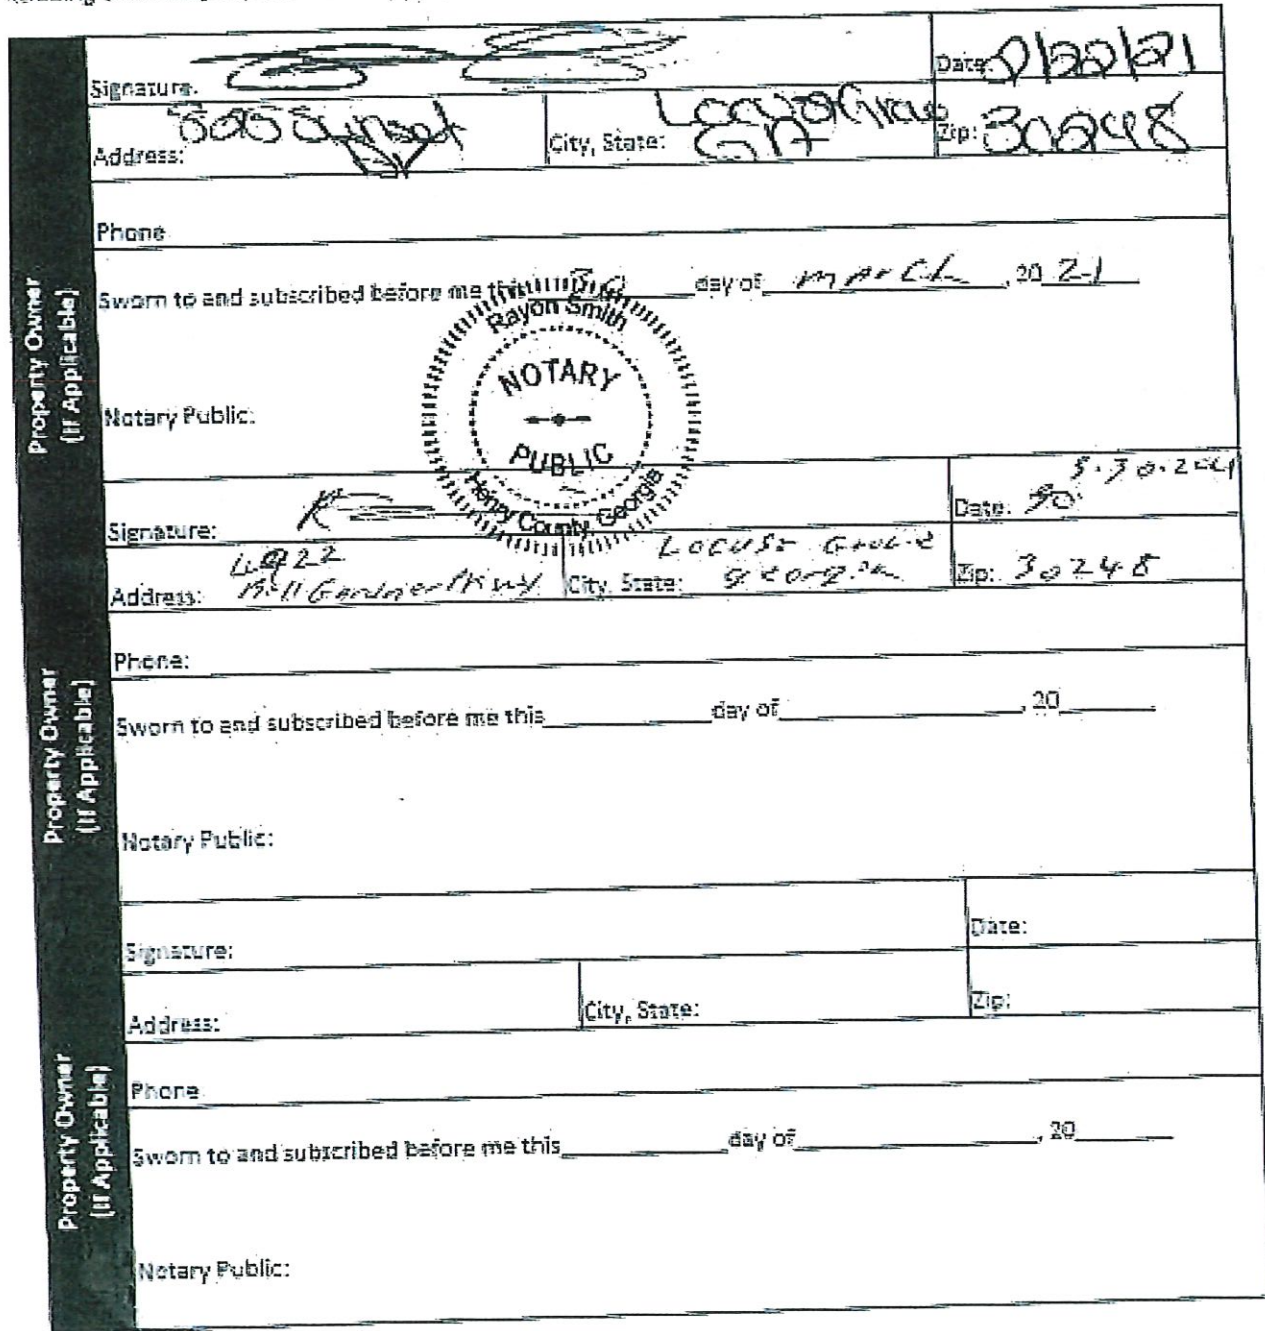 Property Owner
(If Applicable)
Signature:
Date:
Address: Sunset
Dr
City, State:
GA
Zip: 30248
Phone
Sworn to and subscribed before me this 30 day of march, 20 21
Rayon Smith
NOTARY
PUBLIC
Henry County, Georgia
Notary Public:
Property Owner
(If Applicable)
Signature:
Date: 30
Address: Bill Gardner
City, State: Locust Grove
georgia
Zip: 30248
Phone:
Sworn to and subscribed before me this day of , 20
Notary Public:
Property Owner
(If Applicable)
Signature:
Date:
Address:
City, State:
Zip:
Phone
Sworn to and subscribed before me this day of , 20
Notary Public: